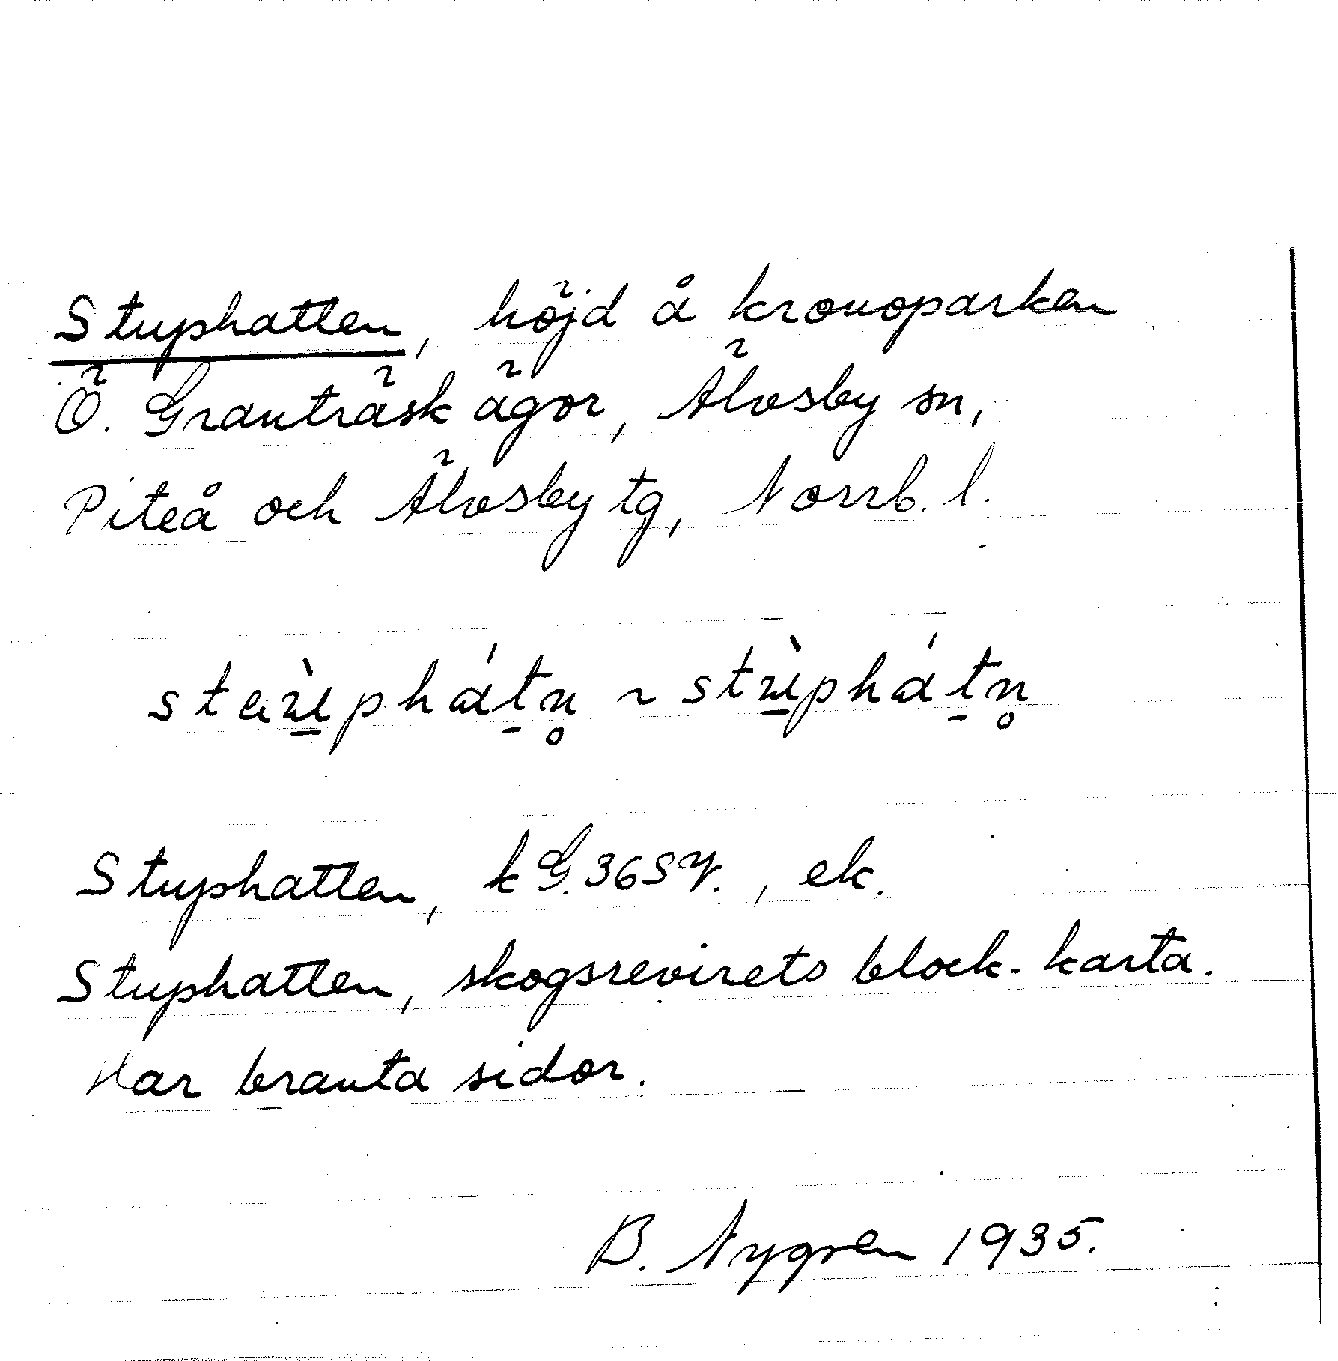 Stuphatten, höjd å kronoparken
Ö. Granträsk ägor, Älvsby sn,
Piteå och Älvsby tg, Norrb. l.
~
Stuphatten, ek.
Stuphatten, skogsrevirets block-karta.
Har branta sidor.
B. Nygren 1935.